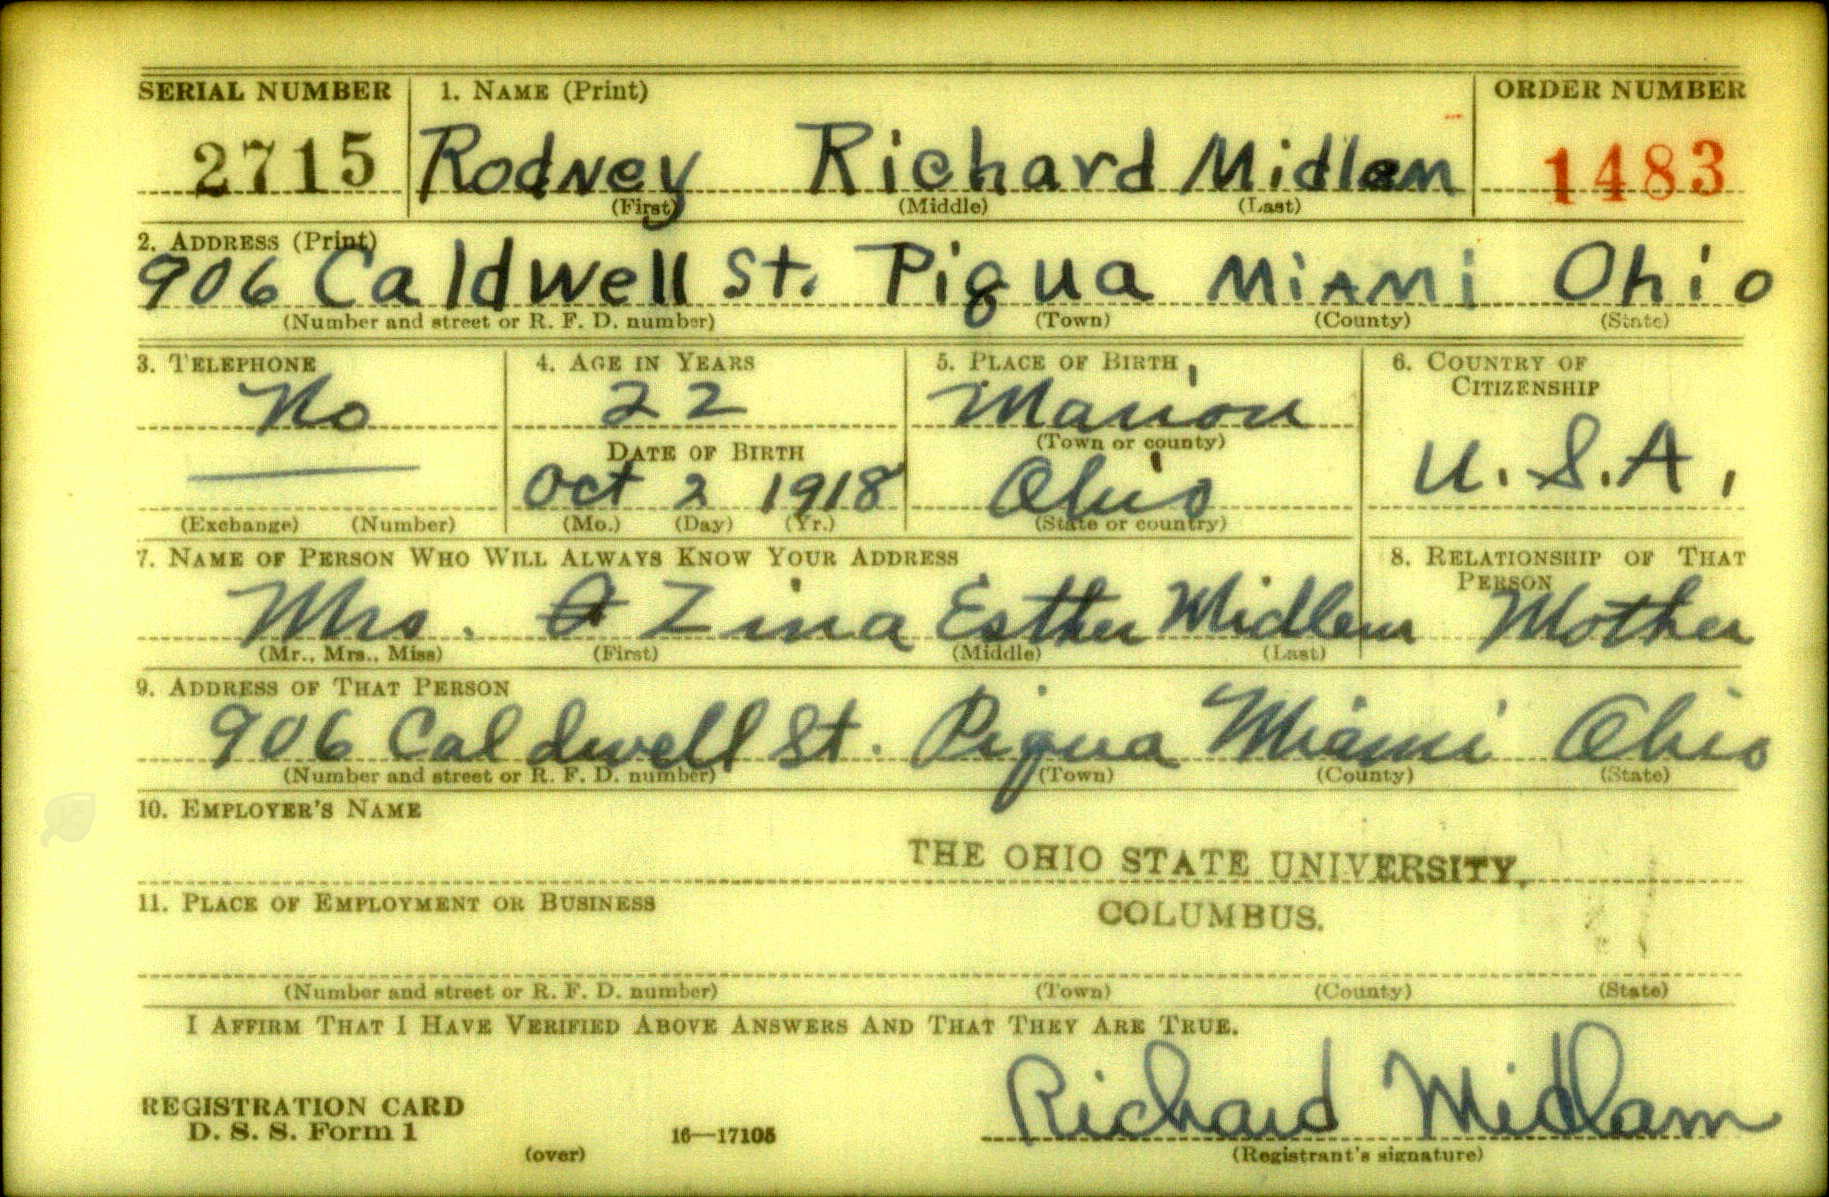 SERIAL NUMBER 1. NAME (Print) ORDER NUMBER
2715 Rodney Richard Midlam 1483
(First) (Middle) (Last)
2. ADDRESS (Print)
906 Caldwell St. Piqua Miami Ohio
(Number and street or R. F. D. number) (Town) (County) (State)
3. TELEPHONE 4. AGE IN YEARS 5. PLACE OF BIRTH 6. COUNTRY OF
CITIZENSHIP
No 22 Marion
DATE OF BIRTH (Town or county)
Oct 2 1918 Ohio U.S.A.
(Exchange) (Number) (Mo.) (Day) (Yr.) (State or country)
7. NAME OF PERSON WHO WILL ALWAYS KNOW YOUR ADDRESS 8. RELATIONSHIP OF THAT
PERSON
Mrs. Zina Esther Midlam Mother
(Mr., Mrs., Miss) (First) (Middle) (Last)
9. ADDRESS OF THAT PERSON
906 Caldwell St. Piqua Miami Ohio
(Number and street or R. F. D. number) (Town) (County) (State)
10. EMPLOYER'S NAME
THE OHIO STATE UNIVERSITY,
11. PLACE OF EMPLOYMENT OR BUSINESS
COLUMBUS.
(Number and street or R. F. D. number) (Town) (County) (State)
I AFFIRM THAT I HAVE VERIFIED ABOVE ANSWERS AND THAT THEY ARE TRUE.
Richard Midlam
REGISTRATION CARD
D. S. S. Form 1 16—17105
(over) (Registrant's signature)